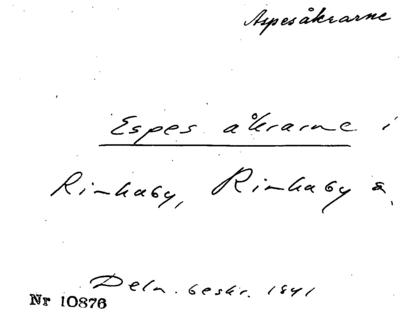 Aspesåkrarne
Espes åkrarne i
Rinkaby, Rinkaby s.
Deln. beskr. 1841
Nr 10876